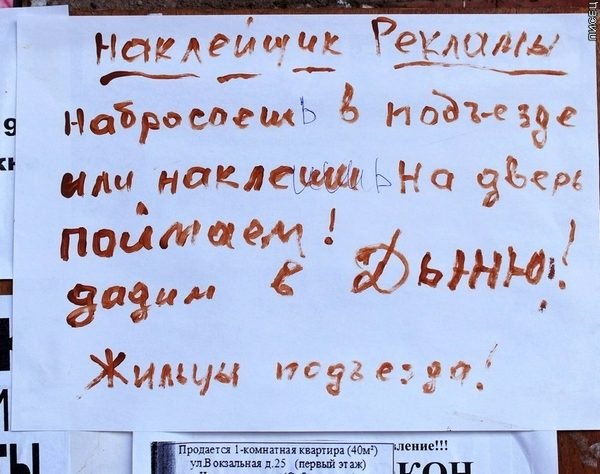 Наклейщик Рекламы
набросаешь в подъезде
или наклеишь на дверь
поймаем!
дадим в Дыню!
Жильцы подъезда!
Продается 1-комнатная квартира (40м²)
ул.Вокзальная д.25 (первый этаж)
ление!!!
КОН
ПИСЕЦ